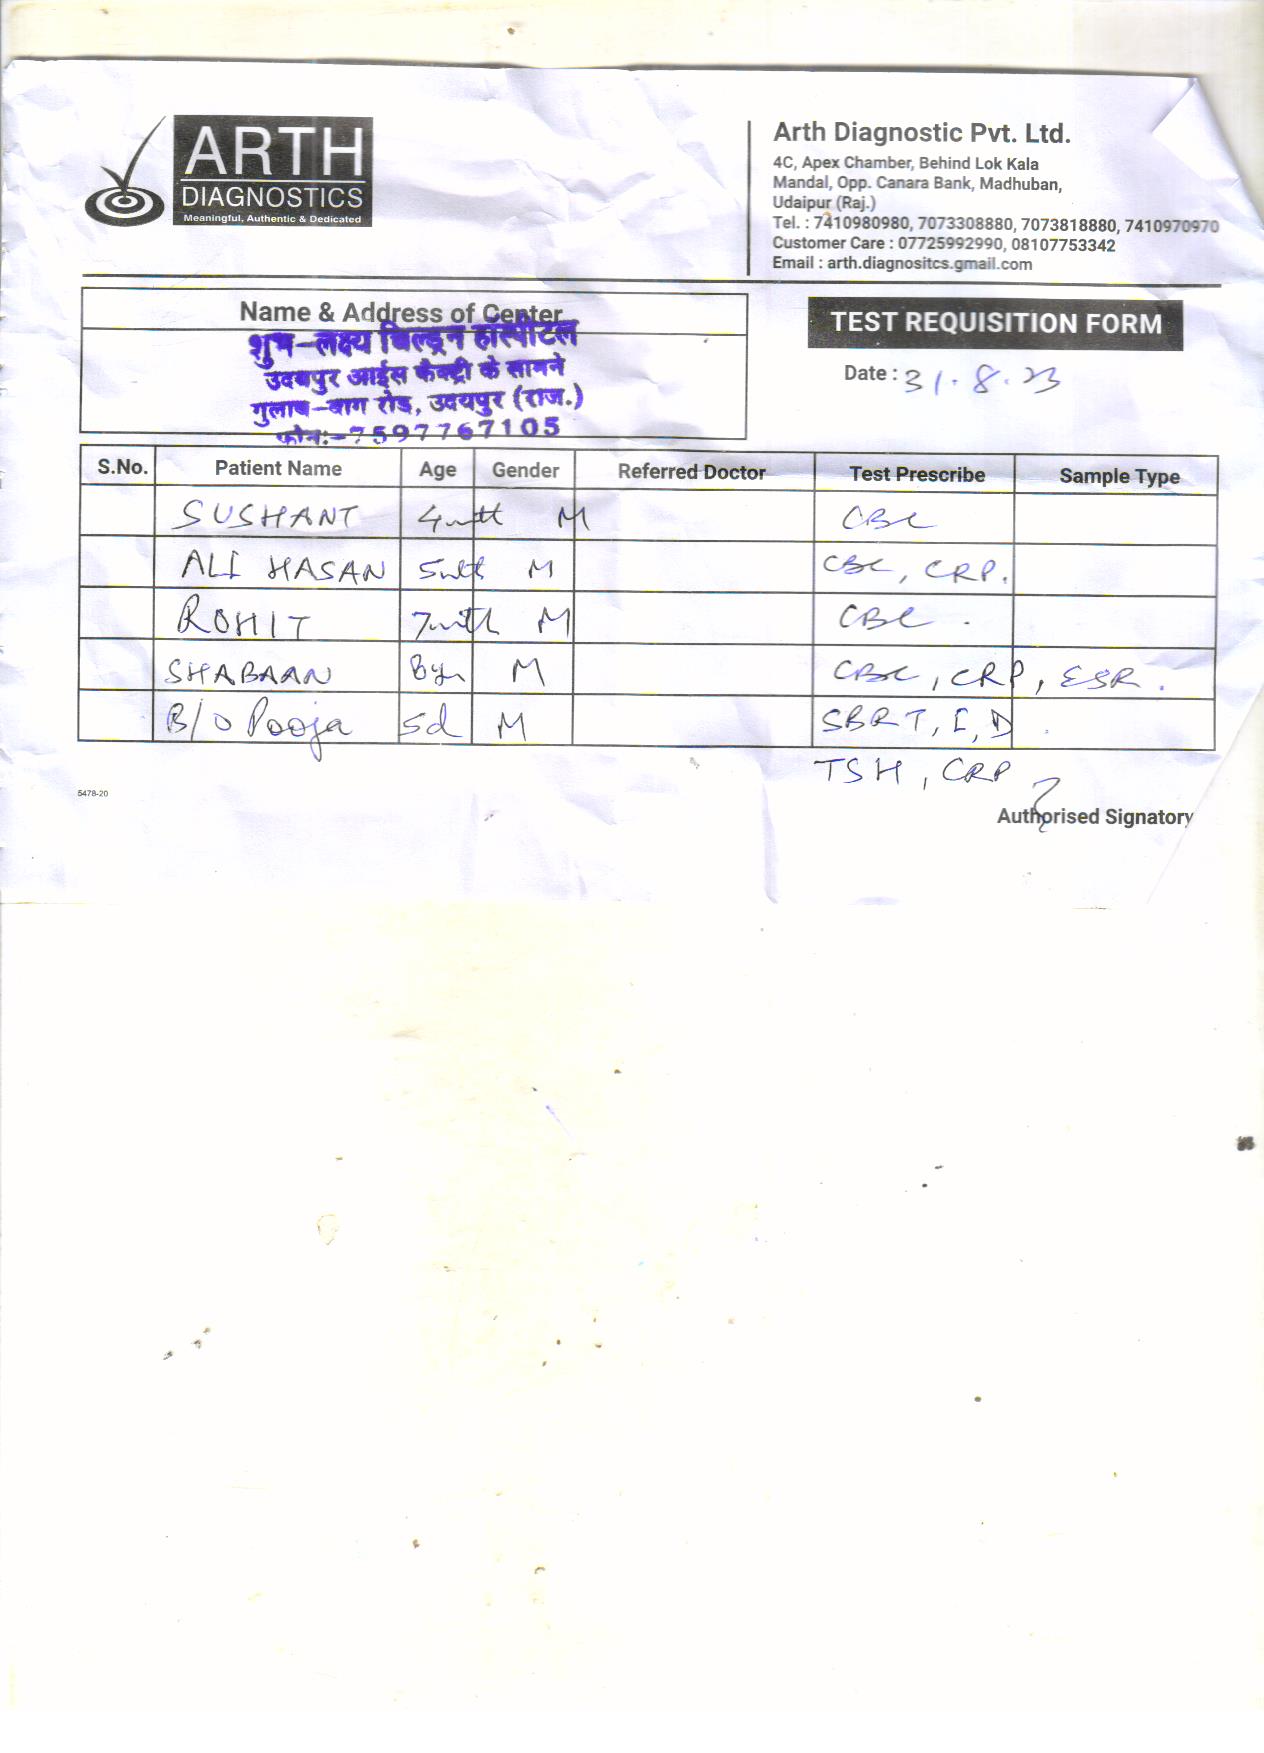 ARTH
DIAGNOSTICS
Meaningful, Authentic & Dedicated
Arth Diagnostic Pvt. Ltd.
4C, Apex Chamber, Behind Lok Kala
Mandal, Opp. Canara Bank, Madhuban,
Udaipur (Raj.)
Tel. : 7410980980, 7073308880, 7073818880, 7410970970
Customer Care : 07725992990, 08107753342
Email : arth.diagnositcs.gmail.com
Name & Address of Center
शुभ-लक्ष्य चिल्ड्रन हॉस्पीटल
उदयपुर आईस फैक्ट्री के सामने
गुलाब-बाग रोड, उदयपुर (राज.)
फोन:-7597767105
TEST REQUISITION FORM
Date : 31.8.23
S.No. Patient Name Age Gender Referred Doctor Test Prescribe Sample Type
SUSHANT 4mth M CBC
ALI HASAN 5mth M CBC, CRP.
ROHIT 7mth M CBC .
SHABAAN 8yr M CBC, CRP, ESR .
B/O Pooja 5d M SBRT, I, D .
TSH, CRP
5478-20
Authorised Signatory